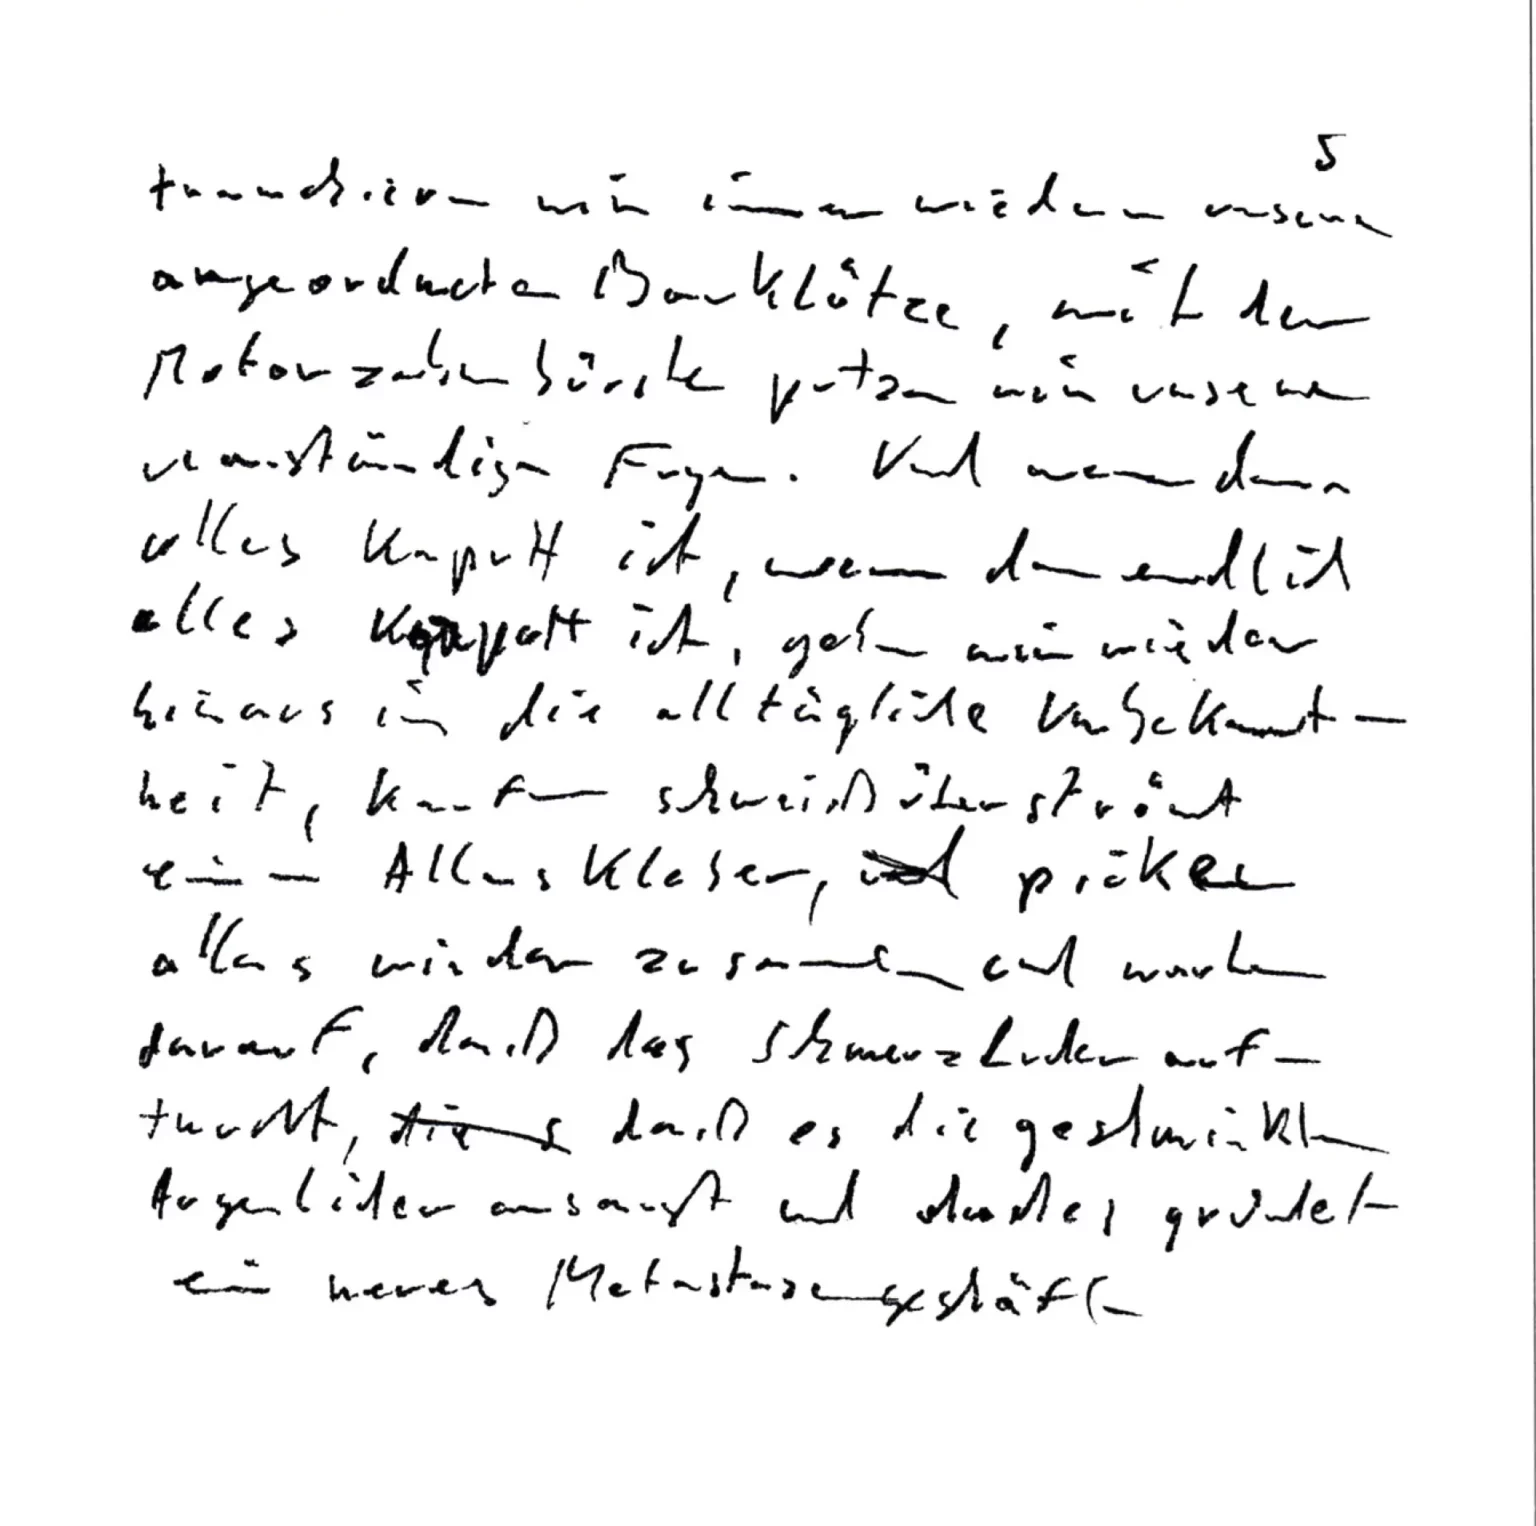 5
wir immer wieder unsere
angeordneten Bauklötze, mit der
Motorzahnbürste putzen wir unsere
verständigen Fugen. Und wenn dann
alles kaputt ist, wenn dann endlich
alles kaputt ist, gehn wir wieder
hinaus in die alltägliche Unbekannt-
heit, kaufen schweißüberströmt
einen Alleskleber, und picken
alles wieder zusammen und warten
darauf, daß das Schmerzluder auf-
taucht, daß es die geschminkten
Augenlider ansaugt und gründet
ein neues Metastasengeschäft